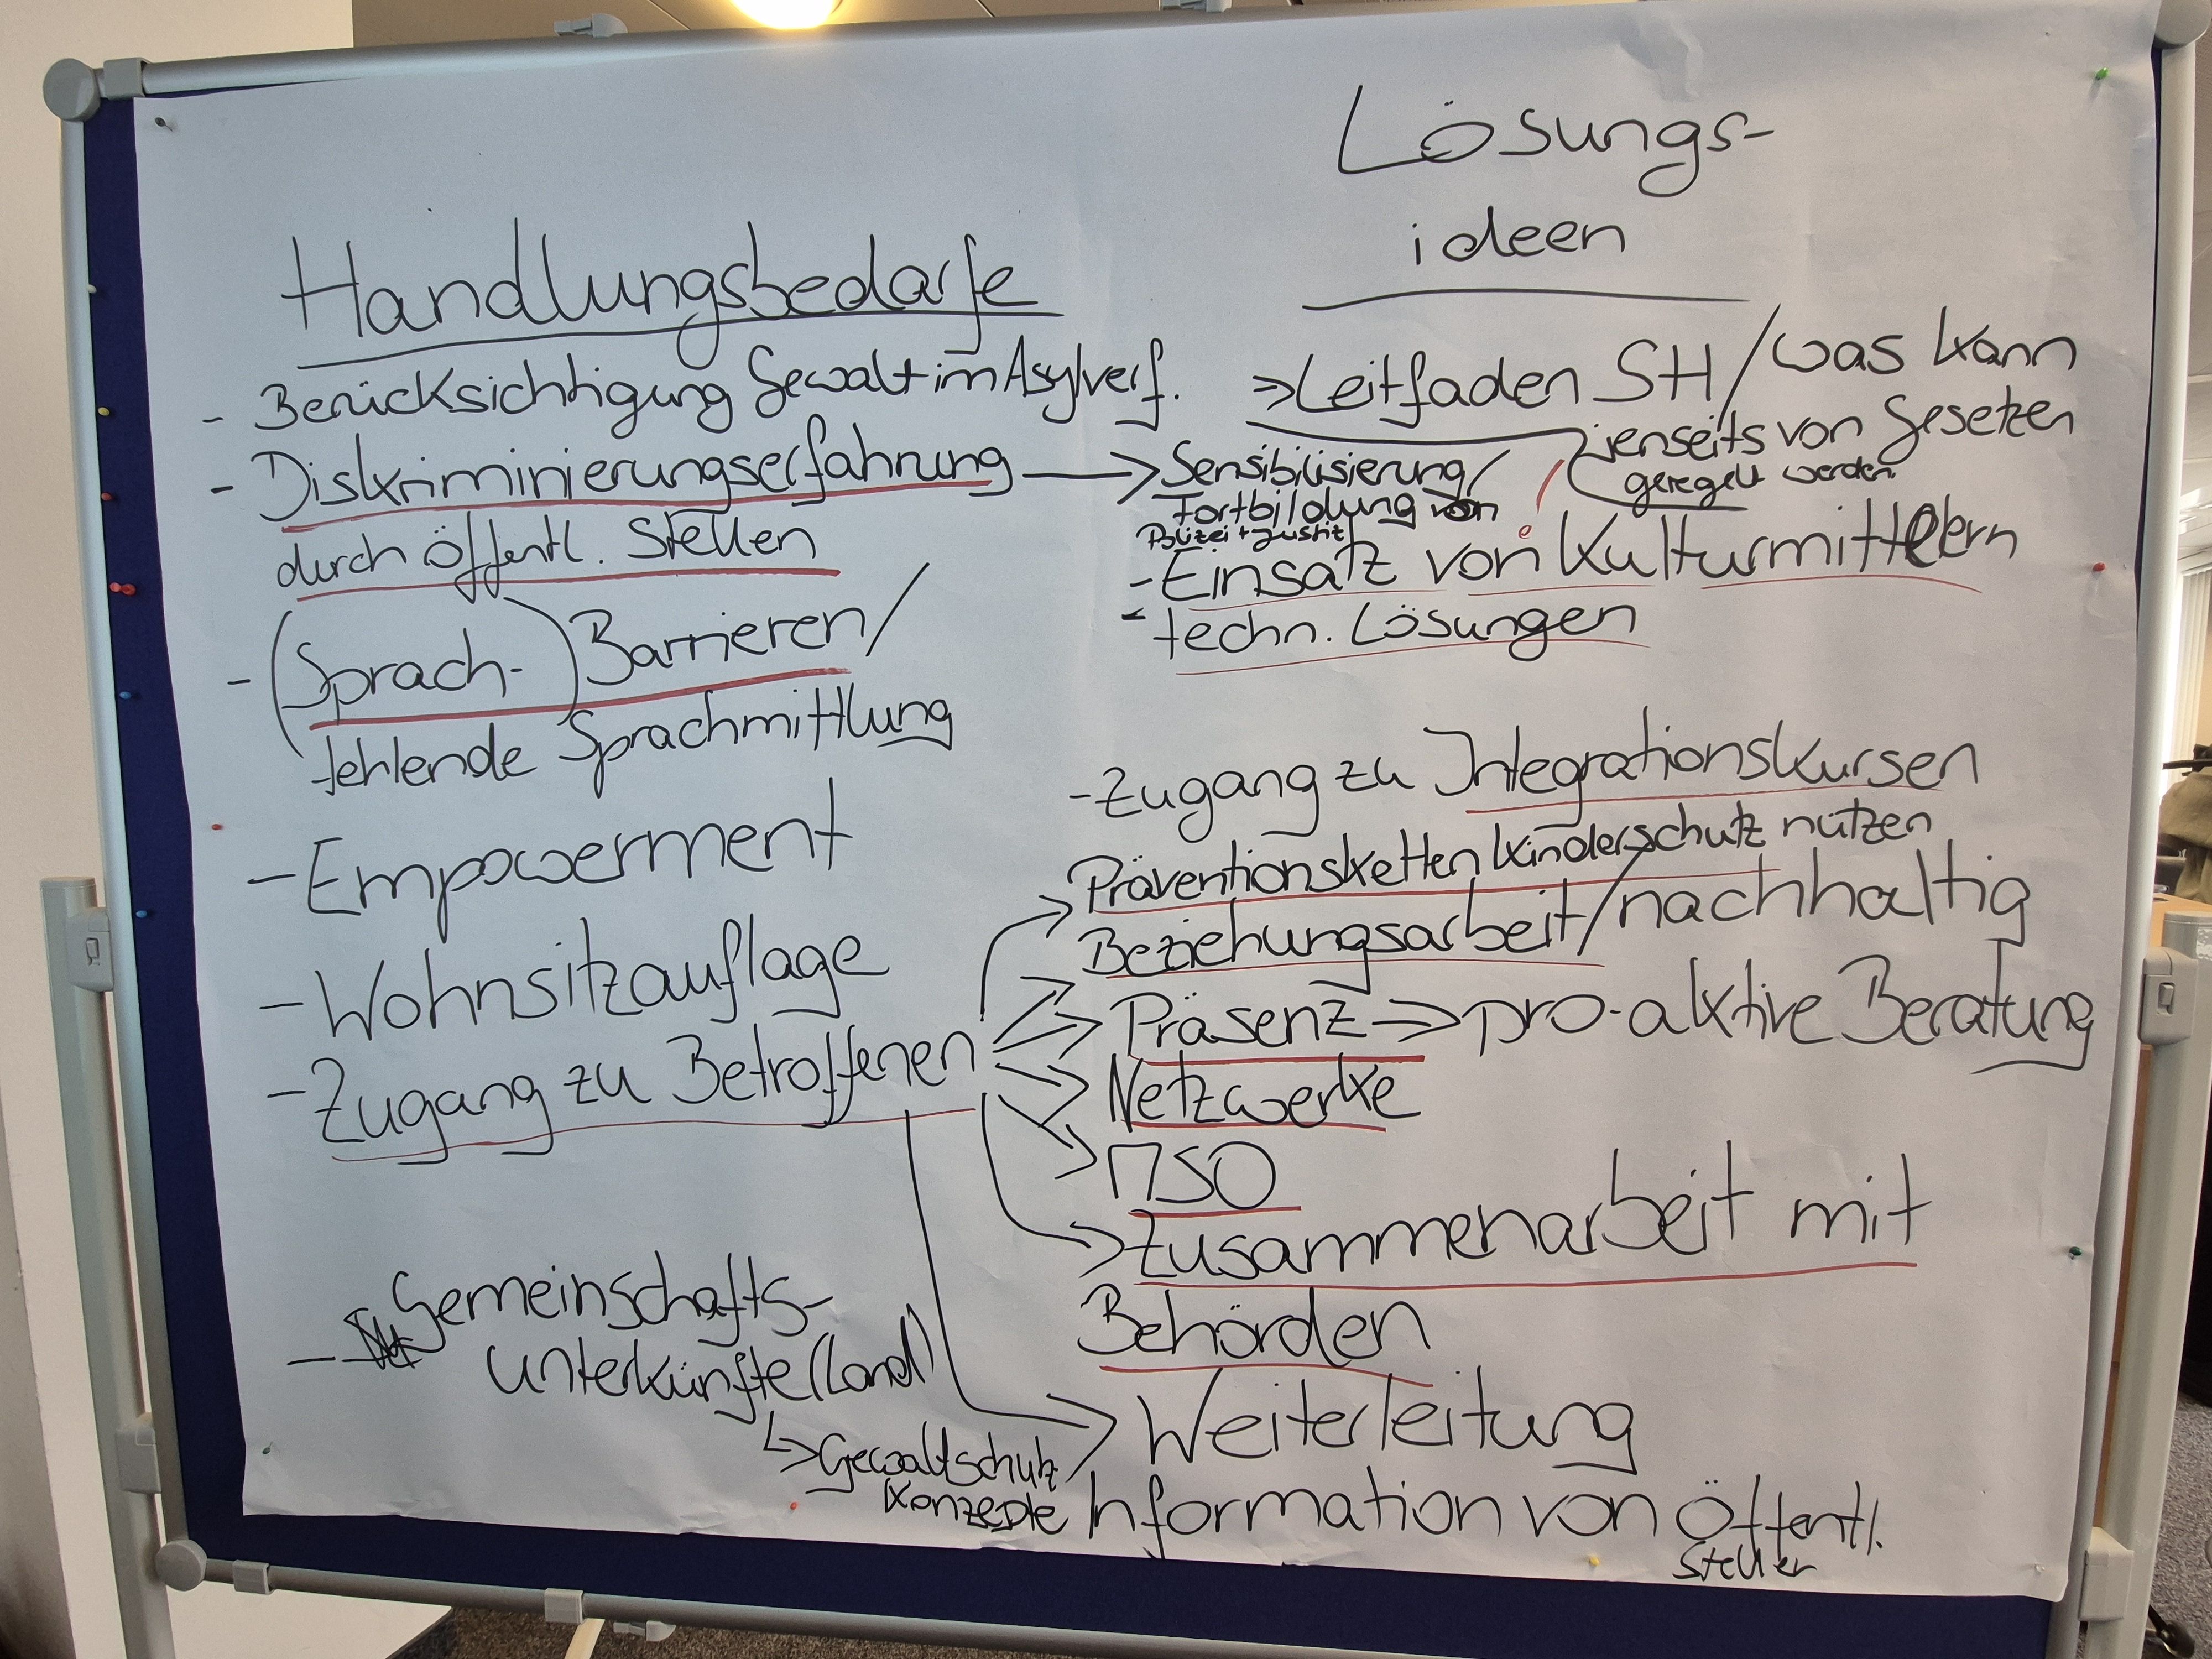 Handlungsbedarfe
- Berücksichtigung Gewalt im Asylverf.
- Diskriminierungserfahrung
durch öffentl. Stellen
- (Sprach-) Barrieren/
fehlende Sprachmittlung
- Empowerment
- Wohnsitzauflage
- Zugang zu Betroffenen
- Gemeinschafts-
unterkünfte (Land)
↳ Gewaltschutz
Konzepte
Lösungs-
ideen
⇒ Leitfaden SH / was kann
jenseits von Gesetzen
geregelt werden
→ Sensibilisierung/
Fortbildung von
Polizei + Justiz
!
- Einsatz von Kulturmittlern
- techn. Lösungen
- Zugang zu Integrationskursen
Präventionsketten Kinderschutz nutzen
Beziehungsarbeit/nachhaltig
Präsenz ⇒ pro-aktive Beratung
Netzwerke
MSO
Zusammenarbeit mit
Behörden
Weiterleitung
/ Information von öffentl.
Stellen